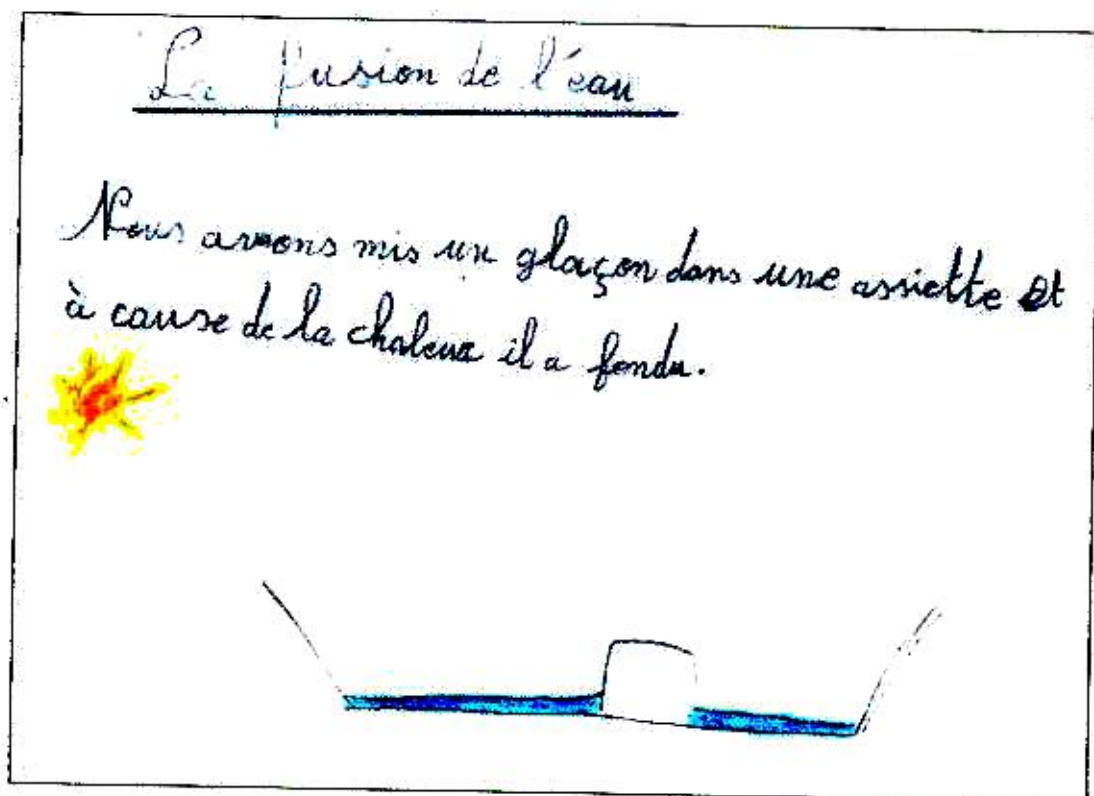 La fusion de l'eau
Nous avons mis un glaçon dans une assiette et
à cause de la chaleur il a fondu.